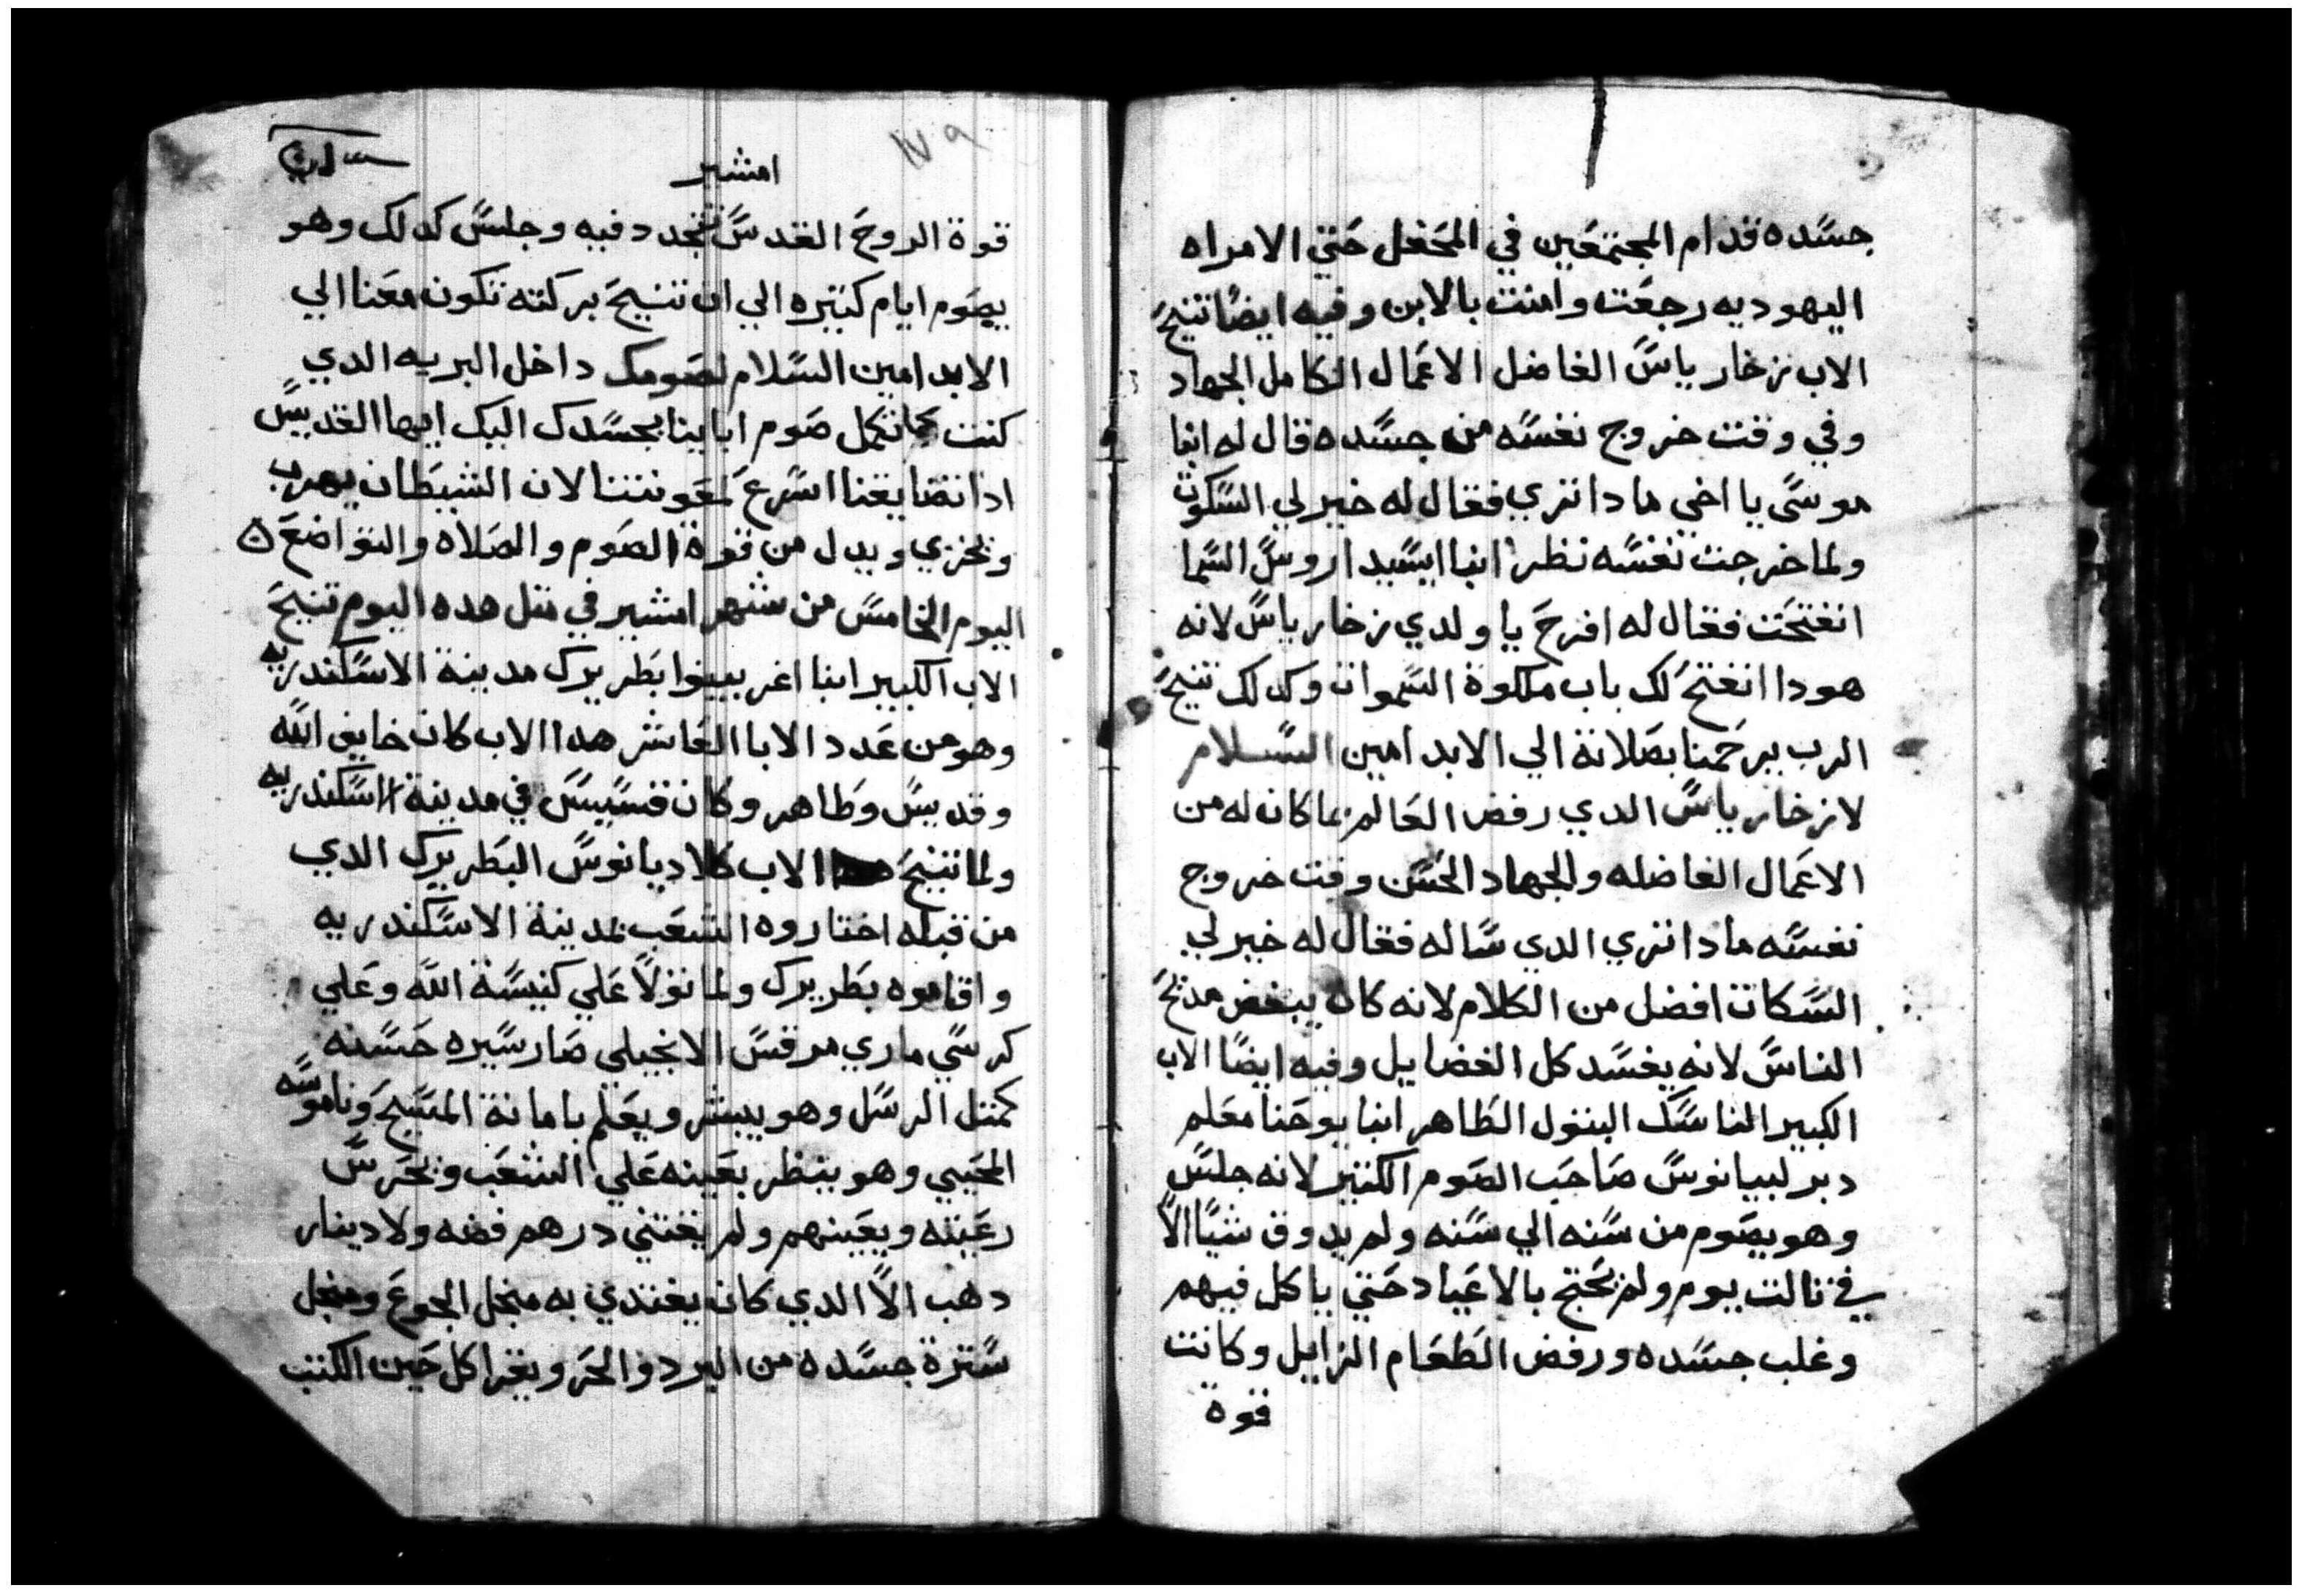 جسده قدام المجتمعين في المحفل حتي الامراه
اليهوديه رجعت وامنت بالابن وفيه ايضا تنيح
الاب زخارياس الفاضل الاعمال الكامل الجهاد
وفي وقت خروج نفسه من جسده قال له انبا
موسي يا اخي مادا تري فقال له خير لي السكوت
ولما خرجت نفسه نظر انبا ايسيداروس السما
انفتحت فقال له افرح يا ولدي زخارياس لانه
هودا انفتح لك باب ملكوة السموات وكدلك تنيح
الرب يرحمنا بصلاتة الي الابد امين السلام
لازخارياس الدي رفض العالم بما كان له من
الاعمال الفاضله والجهاد الحسن وقت خروج
نفسه مادا تري الدي ساله فقال له خير لي
السكات افضل من الكلام لانه كان يبغض مديح
الناس لانه يفسد كل الفضايل وفيه ايضا الاب
الكبير الناسك البتول الطاهر انبا يوحنا معلم
دير لبيانوس صاحب الصوم الكتير لانه جلس
وهو يصوم من سنه الي سنه ولم يدوق شيا الا
في تالت يوم ولم يحتج بالاعياد حتي ياكل فيهم
وغلب جسده ورفض الطعام الزايل وكانت
قوة
١٧٩
امشير
قوة الروح القدس تتجدد فيه وجلس كدلك وهو
يصوم ايام كتيره الي ان تنيح بركته تكون معنا الي
الابد امين السلام لصومك داخل البريه الدي
كنت تكمل صوم اباينا بجسدك اليك ايها القديس
ادا تضايقنا اسرع لمعونتنا لان الشيطان يهرب
ويخزي ويدل من قوة الصوم والصلاه والتواضع ه
اليوم الخامس من شهر امشير في متل هده اليوم تنيح
الاب الكبير ابنا اغربينوا بطريرك مدينة الاسكندريه
وهو من عدد الابا العاشر هدا الاب كان خايف الله
وقديس وطاهر وكان قسيس في مدينة الاسكندريه
ولما تنيح الاب كلاديانوس البطريرك الدي
من قبله اختاروه الشعب لمدينة الاسكندريه
واقاموه بطريرك ولما تولا علي كنيسة الله وعلي
كرسي ماري مرقس الانجيلي صار سيره حسنه
كمتل الرسل وهو يبشر ويعلم بامانة المسيح وناموسه
المحيي وهو ينظر بعينه علي الشعب ويحرس
رعيته ويعينهم ولم يقتني درهم فضه ولا دينار
دهب الا الدي كان يغتدي به منجل الجوع ومنجل
سترة جسده من البرد والحر ويقرا كل حين الكتب